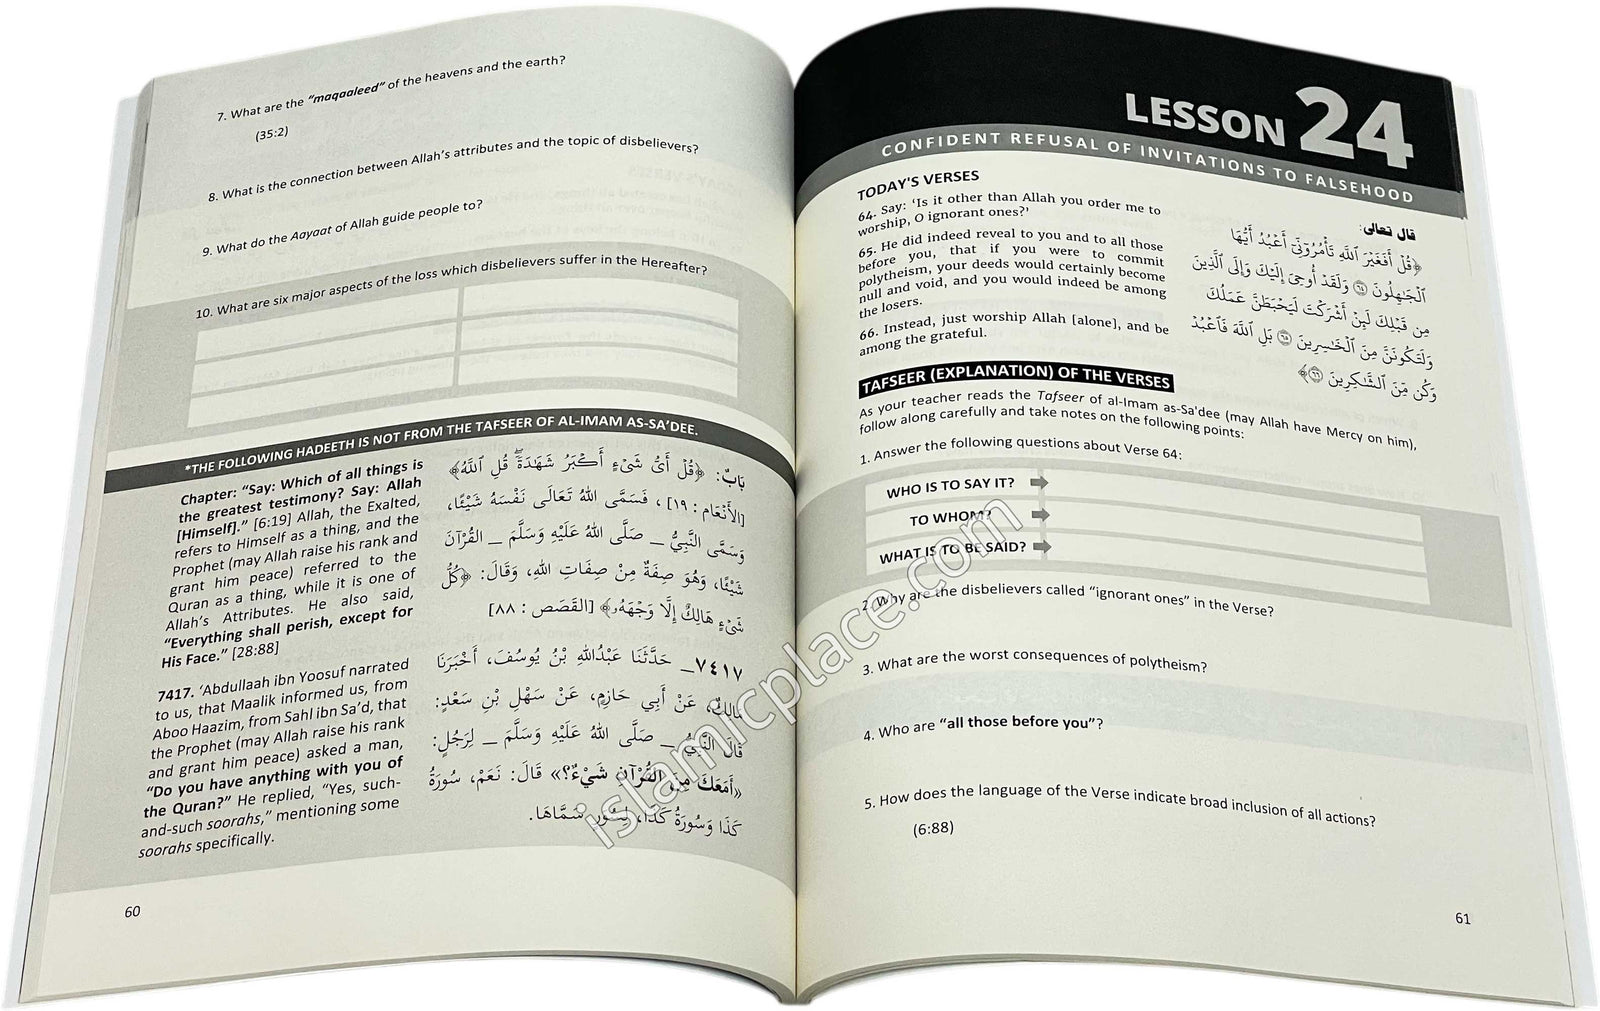 7. What are the "maqaaleed" of the heavens and the earth?
(35:2)
8. What is the connection between Allah's attributes and the topic of disbelievers?
9. What do the Aayaat of Allah guide people to?
10. What are six major aspects of the loss which disbelievers suffer in the Hereafter?
*THE FOLLOWING HADEETH IS NOT FROM THE TAFSEER OF AL-IMAM AS-SA'DEE.
Chapter: "Say: Which of all things is
the greatest testimony? Say: Allah
[Himself]." [6:19] Allah, the Exalted,
refers to Himself as a thing, and the
Prophet (may Allah raise his rank and
grant him peace) referred to the
Quran as a thing, while it is one of
Allah's Attributes. He also said,
"Everything shall perish, except for
His Face." [28:88]
7417. 'Abdullaah ibn Yoosuf narrated
to us, that Maalik informed us, from
Aboo Haazim, from Sahl ibn Sa'd, that
the Prophet (may Allah raise his rank
and grant him peace) asked a man,
"Do you have anything with you of
the Quran?" He replied, "Yes, such-
and-such soorahs," mentioning some
soorahs specifically.
بَابٌ: ﴿قُلْ أَىُّ شَىْءٍ أَكْبَرُ شَهَٰدَةً ۖ قُلِ ٱللَّهُ﴾
[الأَنْعَام : ١٩] ، فَسَمَّى اللهُ تَعَالَى نَفْسَهُ شَيْئًا،
وَسَمَّى النَّبِيُّ _ صَلَّى اللهُ عَلَيْهِ وَسَلَّمَ _ القُرْآنَ
شَيْئًا، وَهُوَ صِفَةٌ مِنْ صِفَاتِ اللهِ، وَقَالَ: ﴿كُلُّ
شَىْءٍ هَالِكٌ إِلَّا وَجْهَهُۥ﴾ [القَصَص : ٨٨]
٧٤١٧_ حَدَّثَنَا عَبْدُاللهِ بْنُ يُوسُفَ، أَخْبَرَنَا
مَالِكٌ، عَنْ أَبِي حَازِمٍ، عَنْ سَهْلِ بْنِ سَعْدٍ:
قَالَ النَّبِيُّ _ صَلَّى اللهُ عَلَيْهِ وَسَلَّمَ _ لِرَجُلٍ:
«أَمَعَكَ مِنَ القُرْآنِ شَيْءٌ؟» قَالَ: نَعَمْ، سُورَةُ
كَذَا وَسُورَةُ كَذَا، لِسُوَرٍ سَمَّاهَا.
60
LESSON 24
CONFIDENT REFUSAL OF INVITATIONS TO FALSEHOOD
TODAY'S VERSES
64. Say: 'Is it other than Allah you order me to
worship, O ignorant ones?'
65. He did indeed reveal to you and to all those
before you, that if you were to commit
polytheism, your deeds would certainly become
null and void, and you would indeed be among
the losers.
66. Instead, just worship Allah [alone], and be
among the grateful.
قال تعالى:
﴿قُلْ أَفَغَيْرَ ٱللَّهِ تَأْمُرُوٓنِّىٓ أَعْبُدُ أَيُّهَا
ٱلْجَٰهِلُونَ ٦٤ وَلَقَدْ أُوحِىَ إِلَيْكَ وَإِلَى ٱلَّذِينَ
مِن قَبْلِكَ لَئِنْ أَشْرَكْتَ لَيَحْبَطَنَّ عَمَلُكَ
وَلَتَكُونَنَّ مِنَ ٱلْخَٰسِرِينَ ٦٥ بَلِ ٱللَّهَ فَٱعْبُدْ
وَكُن مِّنَ ٱلشَّٰكِرِينَ ٦٦﴾
TAFSEER (EXPLANATION) OF THE VERSES
As your teacher reads the Tafseer of al-Imam as-Sa'dee (may Allah have Mercy on him),
follow along carefully and take notes on the following points:
1. Answer the following questions about Verse 64:
WHO IS TO SAY IT?
TO WHOM?
WHAT IS TO BE SAID?
2. Why are the disbelievers called "ignorant ones" in the Verse?
3. What are the worst consequences of polytheism?
4. Who are "all those before you"?
5. How does the language of the Verse indicate broad inclusion of all actions?
(6:88)
61
islamicplace.com